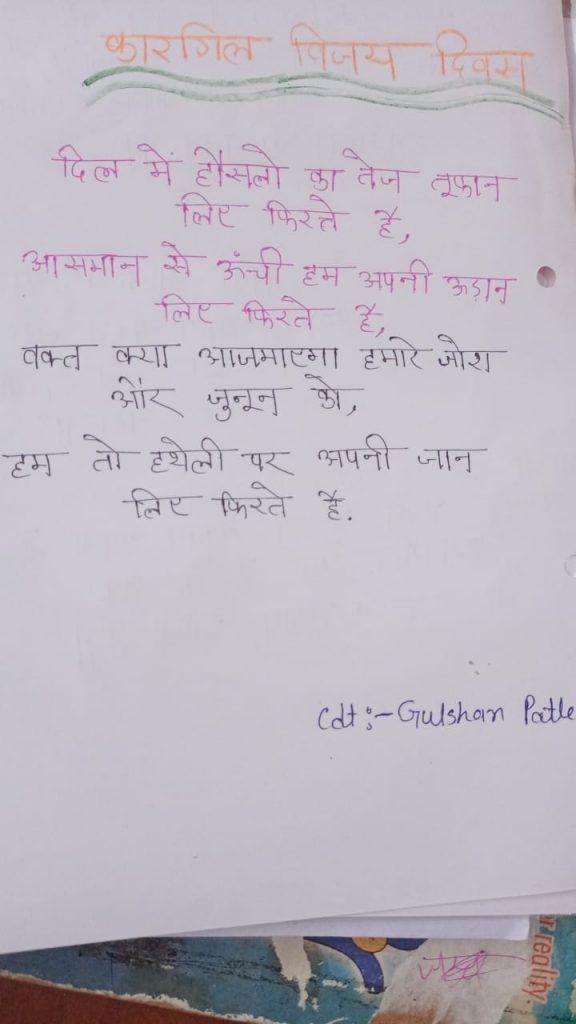 कारगिल विजय दिवस
दिल में हौसलो का तेज तूफान
लिए फिरते है,
आसमान से ऊँची हम अपनी ऊड़ान
लिए फिरते है,
वक्त क्या आजमाएगा हमारे जोश
और जुनून को,
हम तो हथेली पर अपनी जान
लिए फिरते है.
Cdt:- Gulshan Patle
r reality.